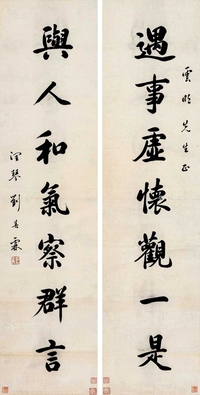 雲昉先生正
遇事虛懷觀一是
與人和氣察群言
潤琴劉春霖